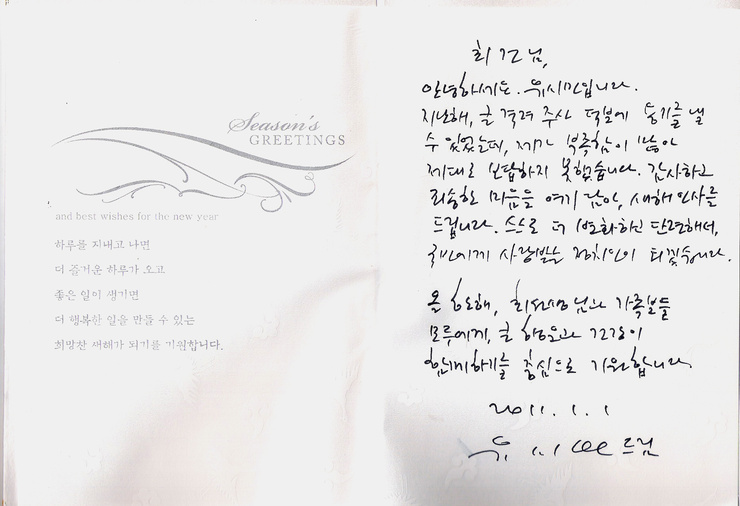 Season's
GREETINGS
and best wishes for the new year
하루를 지내고 나면
더 즐거운 하루가 오고
좋은 일이 생기면
더 행복한 일을 만들 수 있는
희망찬 새해가 되기를 기원합니다.
안녕하세요. 유시민입니다.
지난해, 큰 격려 주신 덕분에 용기를 낼
수 있었는데, 제가 부족함이 많아
제대로 보답하지 못했습니다. 감사하고
죄송한 마음을 여기 담아, 새해 인사를
드립니다. 스스로 더 변화하고 단련해서,
국민에게 사랑받는 정치인이 되겠습니다.
올 한해, 최선생님과 가족분들
모두에게, 큰 행운과 건강이
함께하기를 충심으로 기원합니다.
2011. 1. 1
유시민 드림